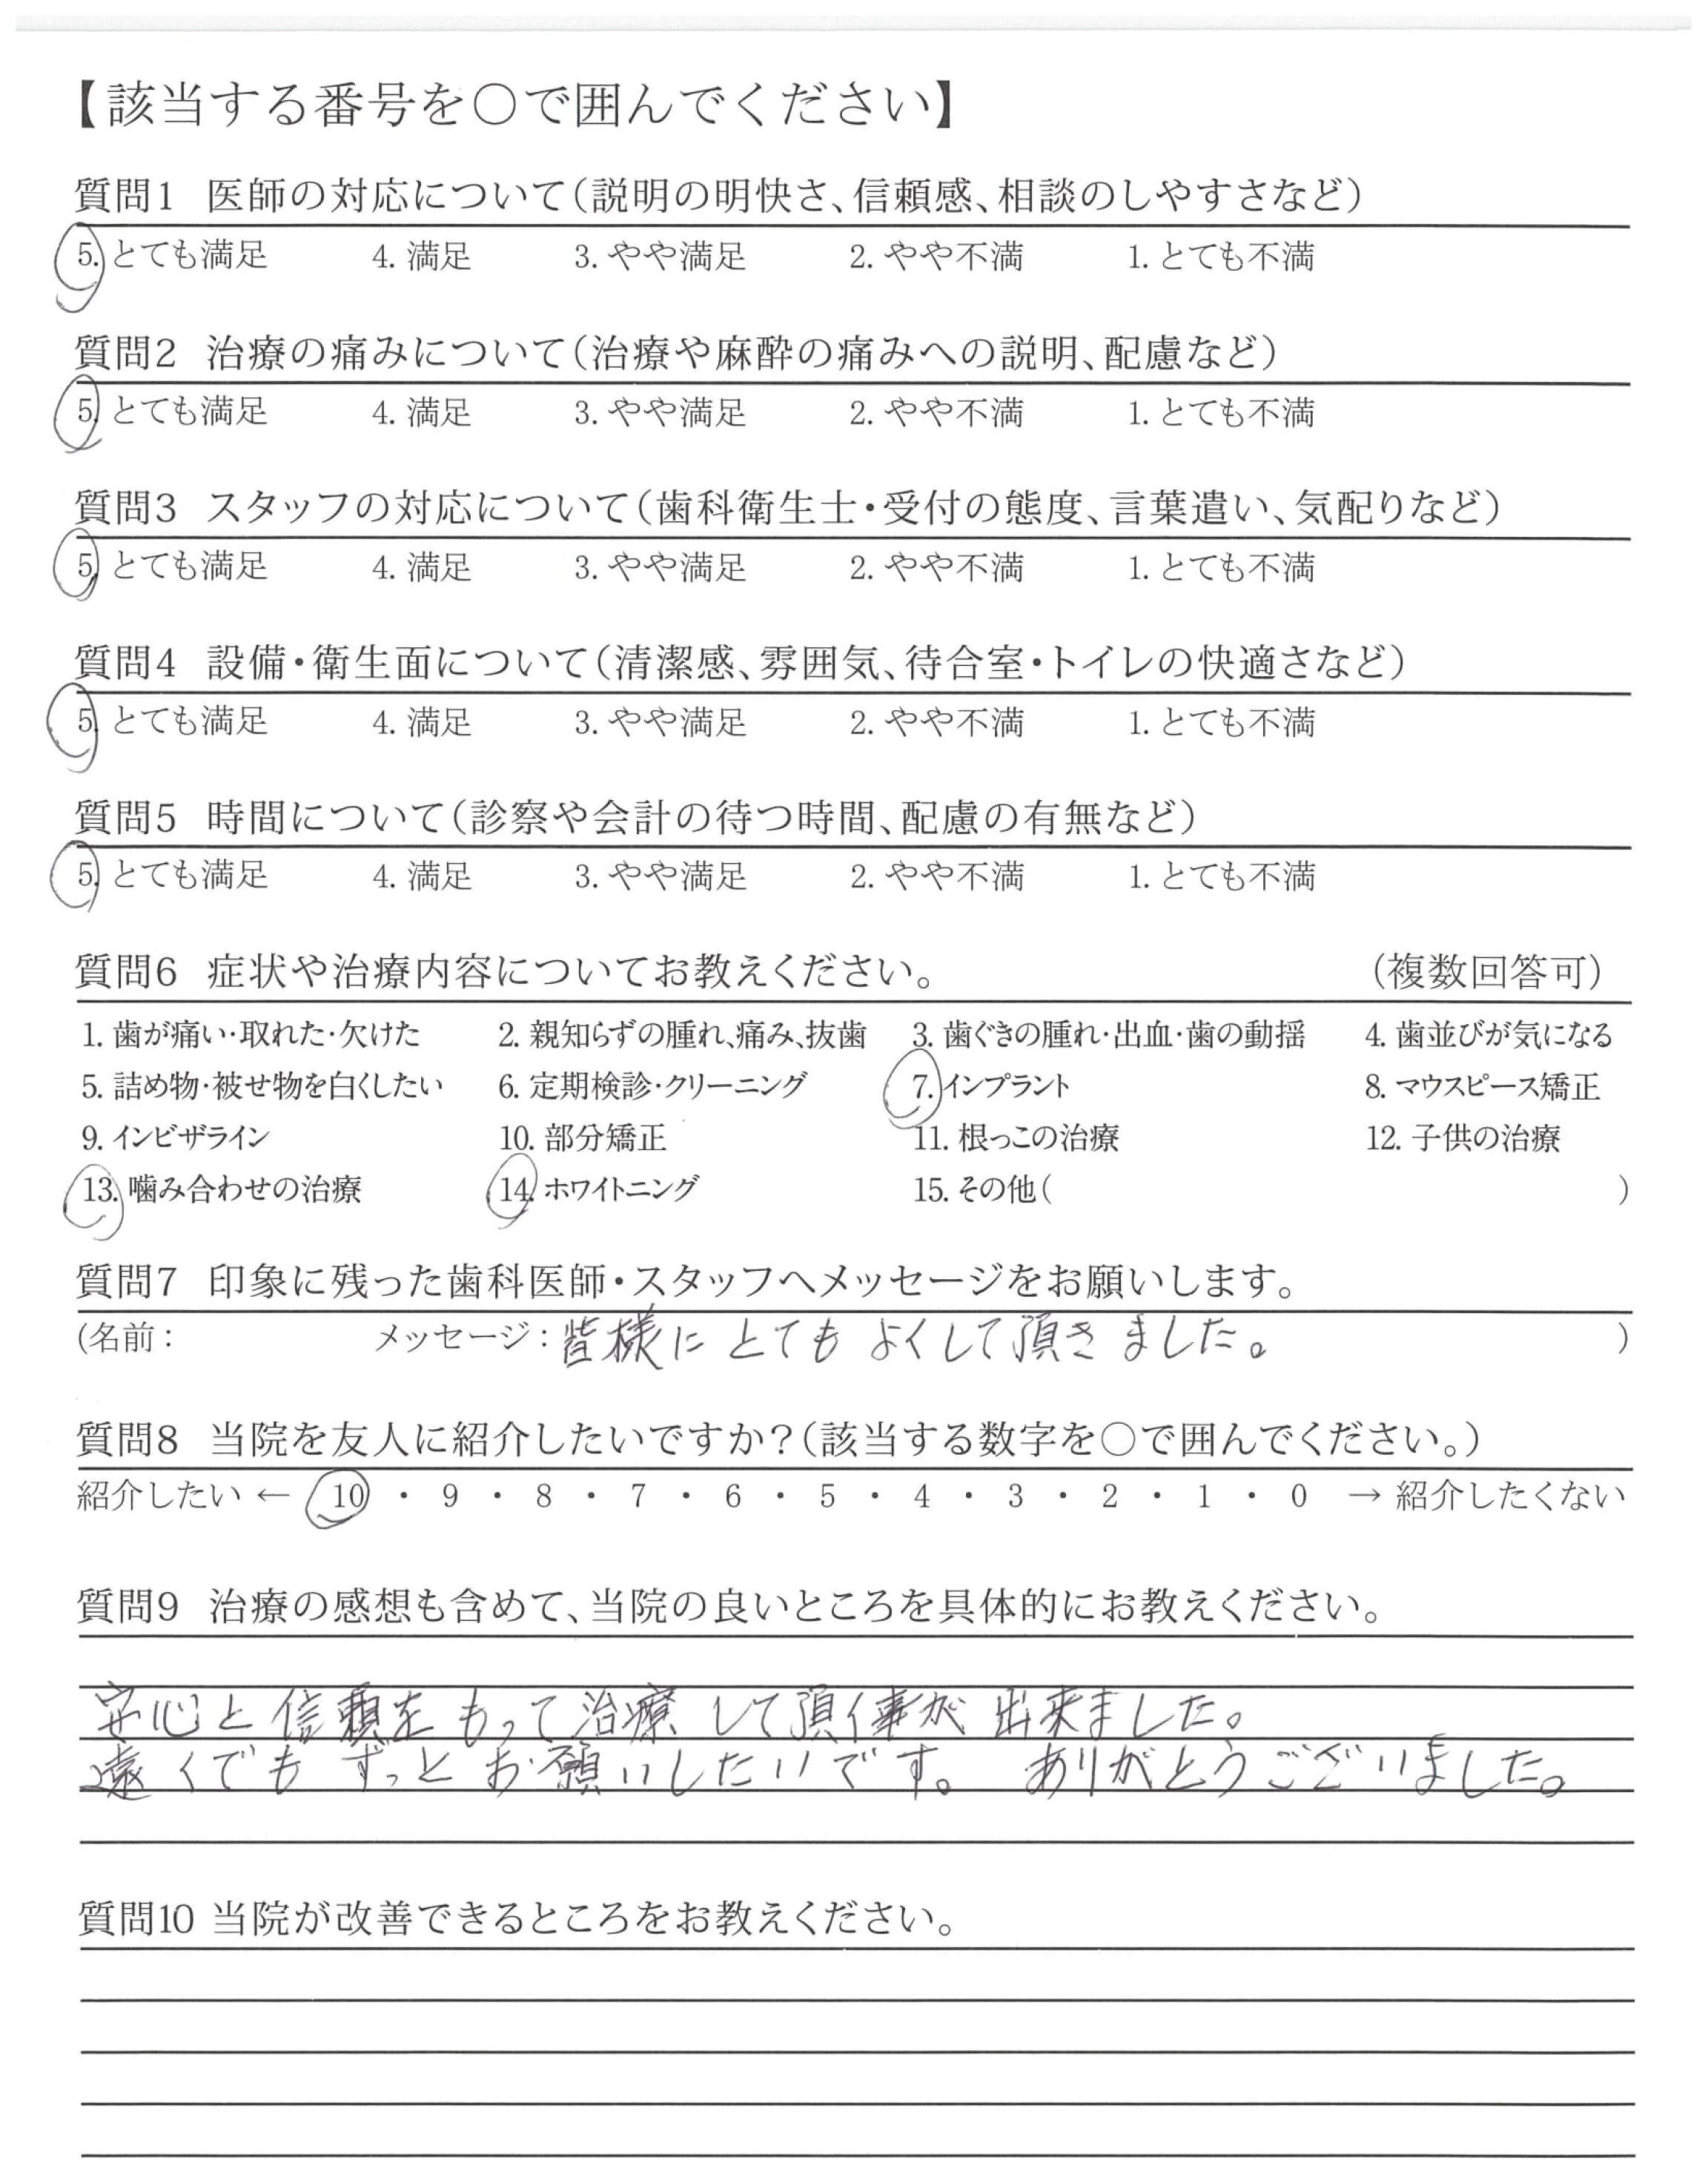 【該当する番号を○で囲んでください】
質問1 医師の対応について(説明の明快さ、信頼感、相談のしやすさなど)
5. とても満足 4. 満足 3. やや満足 2. やや不満 1. とても不満
質問2 治療の痛みについて(治療や麻酔の痛みへの説明、配慮など)
5. とても満足 4. 満足 3. やや満足 2. やや不満 1. とても不満
質問3 スタッフの対応について(歯科衛生士・受付の態度、言葉遣い、気配りなど)
5. とても満足 4. 満足 3. やや満足 2. やや不満 1. とても不満
質問4 設備・衛生面について(清潔感、雰囲気、待合室・トイレの快適さなど)
5. とても満足 4. 満足 3. やや満足 2. やや不満 1. とても不満
質問5 時間について(診察や会計の待つ時間、配慮の有無など)
5. とても満足 4. 満足 3. やや満足 2. やや不満 1. とても不満
質問6 症状や治療内容についてお教えください。 (複数回答可)
1. 歯が痛い・取れた・欠けた 2. 親知らずの腫れ、痛み、抜歯 3. 歯ぐきの腫れ・出血・歯の動揺 4. 歯並びが気になる
5. 詰め物・被せ物を白くしたい 6. 定期検診・クリーニング 7. インプラント 8. マウスピース矯正
9. インビザライン 10. 部分矯正 11. 根っこの治療 12. 子供の治療
13. 噛み合わせの治療 14. ホワイトニング 15. その他( )
質問7 印象に残った歯科医師・スタッフへメッセージをお願いします。
(名前: メッセージ:皆様に とても よくして頂きました。 )
質問8 当院を友人に紹介したいですか?(該当する数字を○で囲んでください。)
紹介したい ← 10 ・ 9 ・ 8 ・ 7 ・ 6 ・ 5 ・ 4 ・ 3 ・ 2 ・ 1 ・ 0 → 紹介したくない
質問9 治療の感想も含めて、当院の良いところを具体的にお教えください。
安心と信頼をもって治療して頂く事が出来ました。
遠くでもずっとお願いしたいです。 ありがとうございました。
質問10 当院が改善できるところをお教えください。